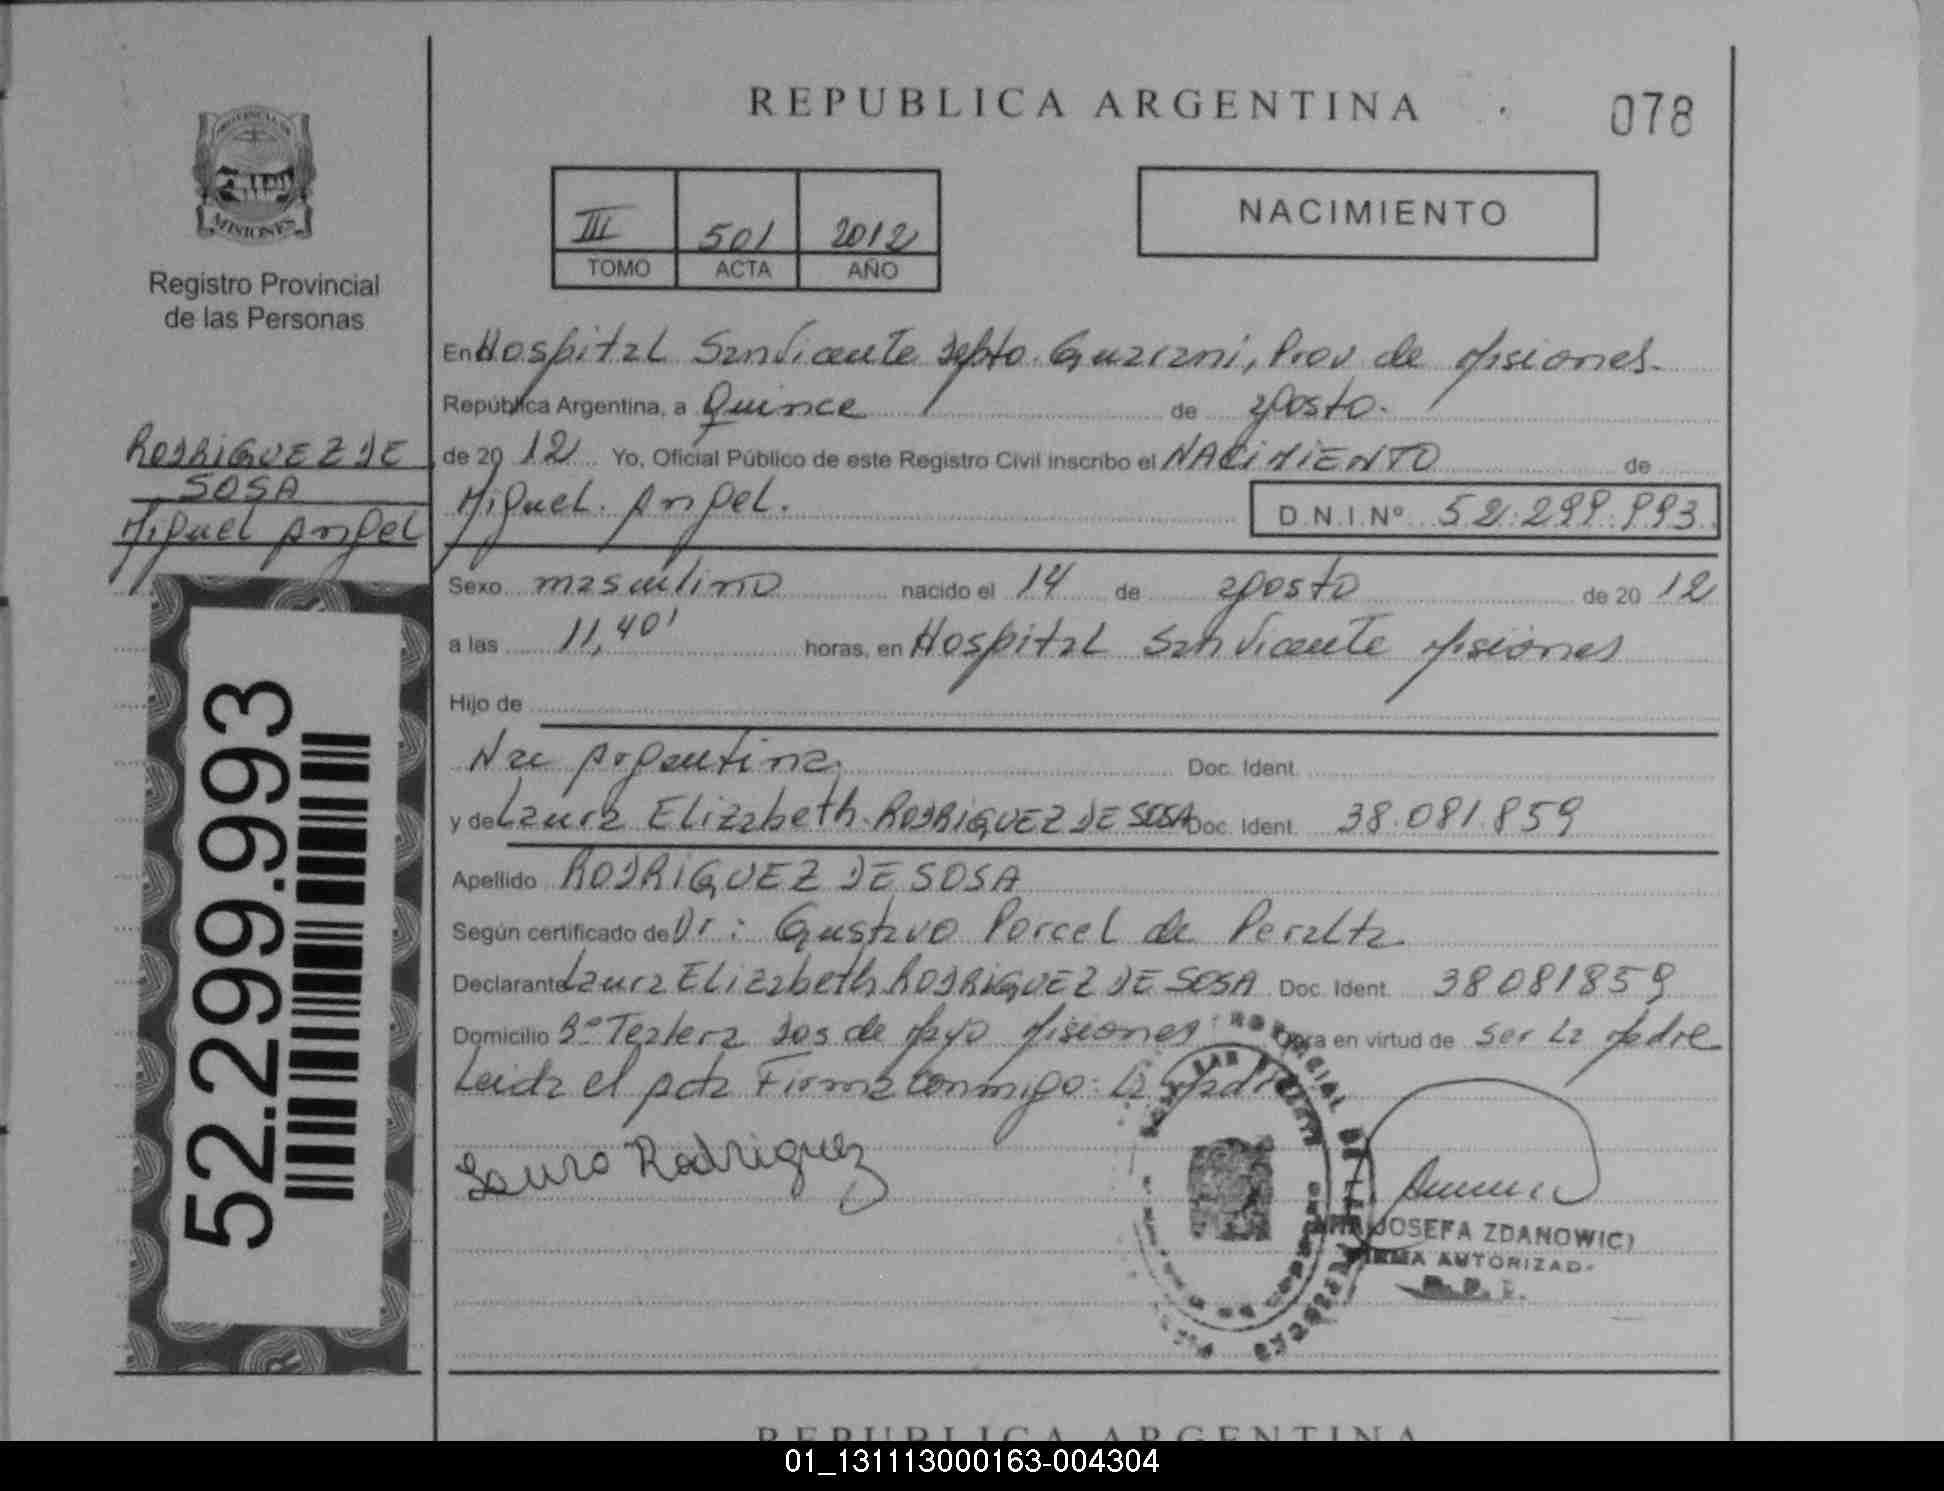 REPUBLICA ARGENTINA
078
PROVINCIA DE
MISIONES
Registro Provincial
de las Personas
III 501 2012
TOMO ACTA AÑO
NACIMIENTO
En Hospital San Vicente Depto. Guarani, Prov de Misiones.
República Argentina, a Quince de agosto.
de 2012 Yo, Oficial Público de este Registro Civil inscribo el NACIMIENTO de
Miguel. Angel. D.N.I.Nº 52.299.993
RODRIGUEZ DE
SOSA
Miguel Angel
52.299.993
Sexo masculino nacido el 14 de agosto de 2012
a las 11,40' horas, en Hospital San Vicente Misiones
Hijo de
Nac Argentina. Doc. Ident.
y de Laura Elizabeth RODRIGUEZ DE SOSA Doc. Ident. 38.081.859
Apellido RODRIGUEZ DE SOSA
Según certificado de Dr: Gustavo Porcel de Peralta
Declarante Laura Elizabeth RODRIGUEZ DE SOSA Doc. Ident. 38081859
Domicilio Bº Tealera Dos de Mayo Misiones Obra en virtud de Ser La Madre
Leida el Acta Firma conmigo: La Madre
Laura Rodriguez
JOSEFA ZDANOWICZ
FIRMA AUTORIZADA
R.P.P.
REPUBLICA ARGENTINA
01_131113000163-004304